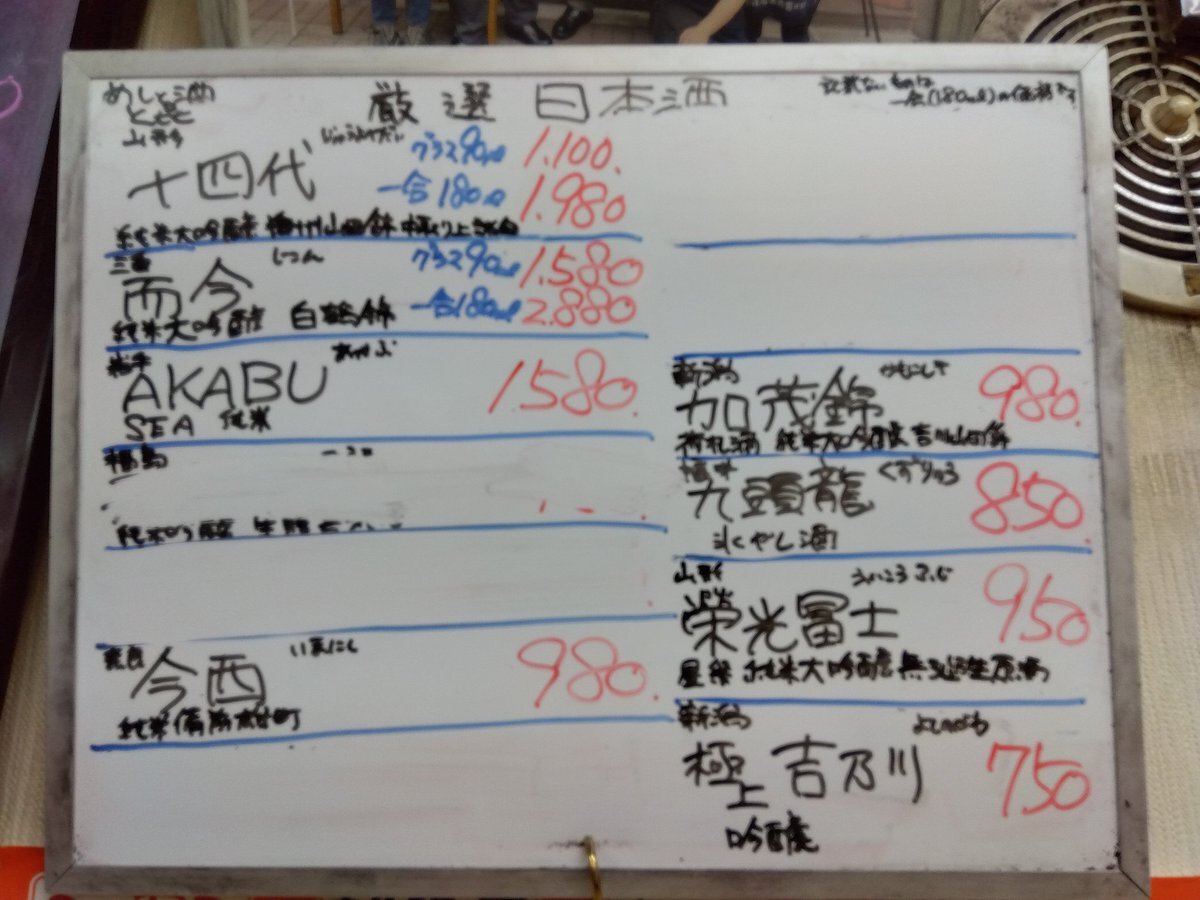 めしと酒
ととと
厳選日本酒
記載ないものは
一合(180ml)の価格です
山形
じゅうよんだい
十四代
グラス90ml 1.100.
一合180ml 1.980
純米大吟醸 播州山田錦 極上諸白
三重
じこん
而今
グラス90ml 1.580
一合180ml 2.880
純米大吟醸 白鶴錦
岩手
あかぶ
AKABU 1.580.
SEA 純米
福島
純米吟醸
奈良
いまにし
今西 980.
純米 備前雄町
新潟
かもにしき
加茂錦 980.
荷札酒 純米大吟醸 吉川山田錦
福井
くずりゅう
九頭龍 850.
氷やし酒
山形
えいこうふじ
榮光冨士 950
星祭 純米大吟醸 無濾過生原酒
新潟
よしのがわ
極上 吉乃川 750
吟醸